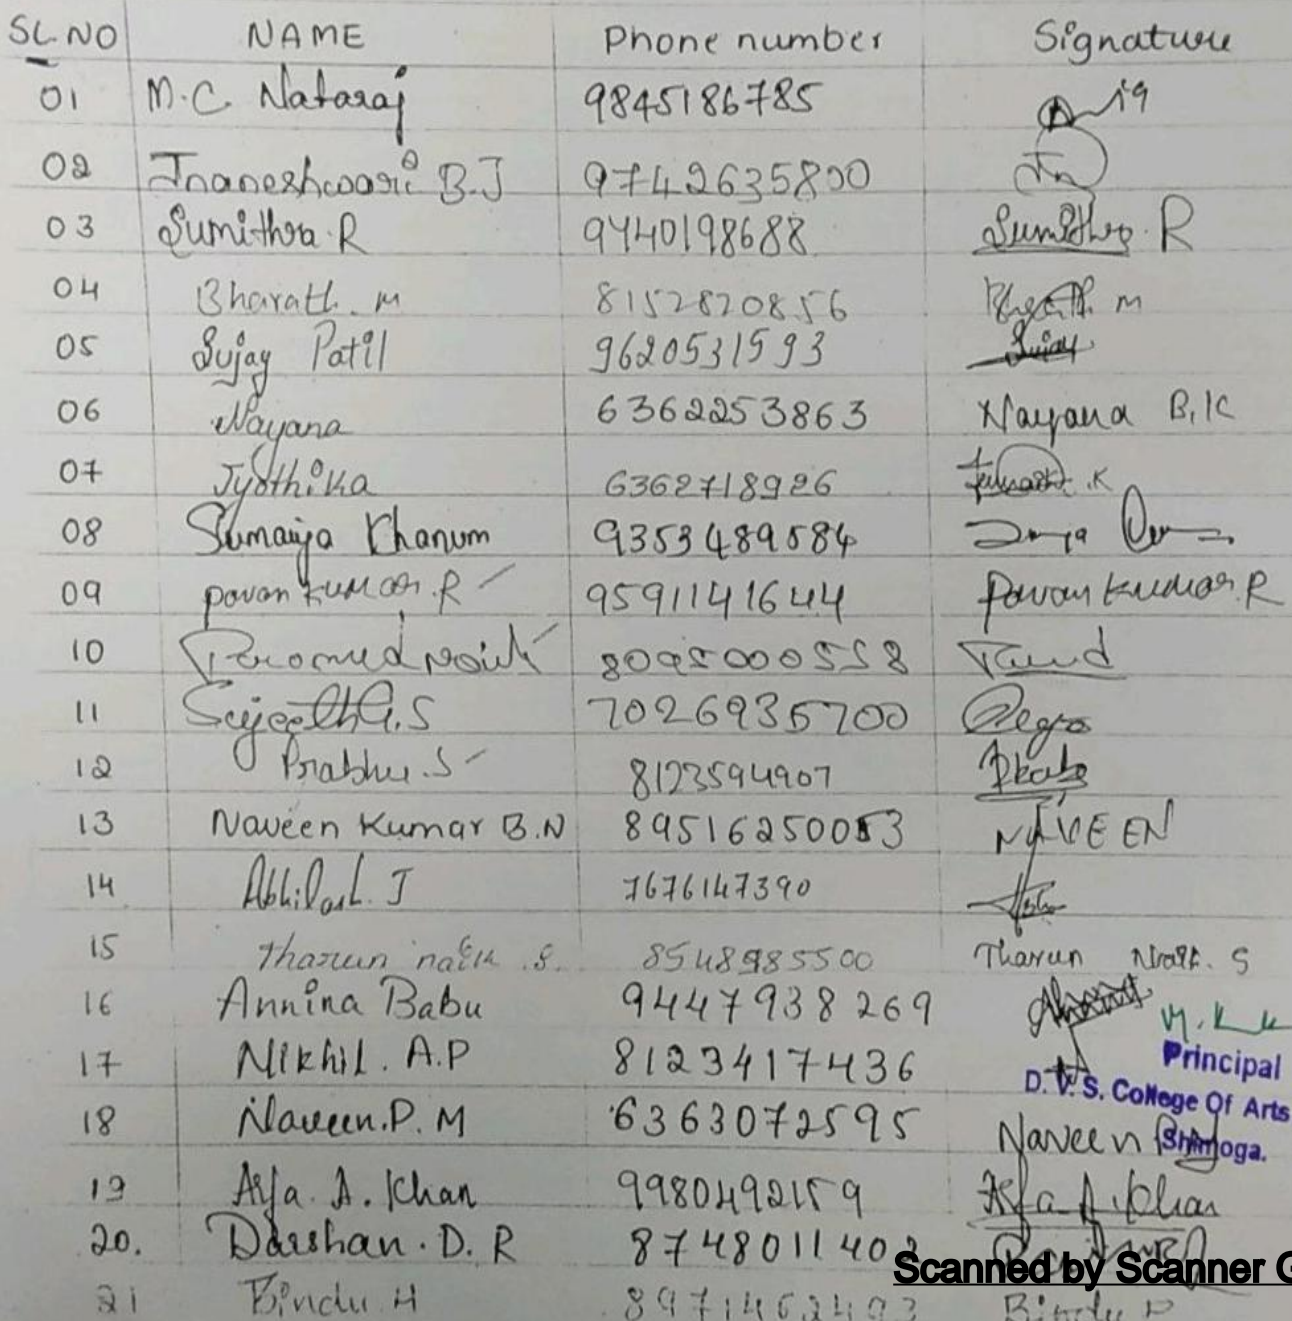 SL.NO NAME Phone number Signature
01 M.C. Nataraj 9845186785
02 Jnaneshwari B.J 9742635800 Jn
03 Sumithra.R 9440198688 Sumithra.R
04 Bharath.M 8152820856 Bharath.M
05 Sujay Patil 9620531593 Sujay
06 Nayana 6362253863 Nayana B.K
07 Jyothika 6362718926
08 Sumaiya Khanum 9353489584
09 Pavan Kumar.R 9591141644 Pavan Kumar.R
10 Naik 8095000558
11 Sujeeth G.S 7026935700
12 Prabhu.S 8123594907
13 Naveen Kumar B.N 89516250053 NAVEEN
14 Abhilash.J 7676147390
15 Tharun naik.S. 8548985500 Tharun Naik.S
16 Annina Babu 9447938269
17 Nikhil.A.P 8123417436
Principal
D.V.S. College Of Arts
Shimoga.
18 Naveen.P.M 6363072595 Naveen
19 Asfa.A.Khan 9980492159 Asfa A.Khan
20. Darshan.D.R 874801140
Scanned by Scanner G
21 Bindu.H Bindu.H